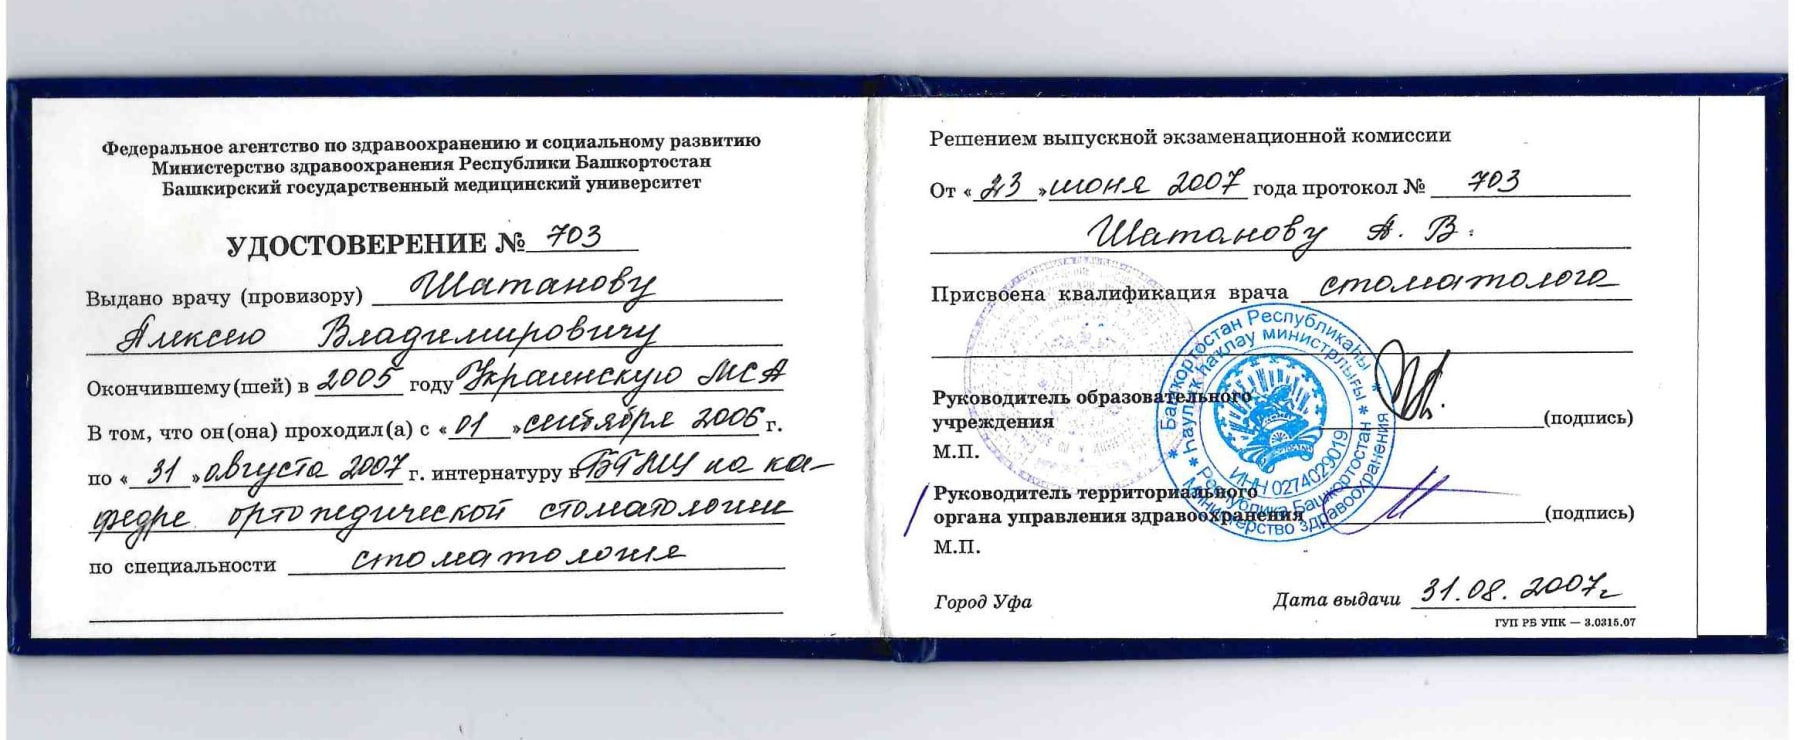 Федеральное агентство по здравоохранению и социальному развитию
Министерство здравоохранения Республики Башкортостан
Башкирский государственный медицинский университет
УДОСТОВЕРЕНИЕ № 703
Выдано врачу (провизору) Шатанову
Алексею Владимировичу
Окончившему(шей) в 2005 году Украинскую МСА
В том, что он(она) проходил(а) с «01» сентября 2006 г.
по «31» августа 2007 г. интернатуру в БГМУ на ка-
федре ортопедической стоматологии
по специальности стоматология
Решением выпускной экзаменационной комиссии
От «23» июня 2007 года протокол № 703
Шатанову А. В.
Присвоена квалификация врача стоматолога
Руководитель образовательного
учреждения (подпись)
М.П.
Руководитель территориального
органа управления здравоохранения (подпись)
М.П.
Город Уфа Дата выдачи 31.08.2007г
ГУП РБ УПК — 3.0315.07
Башҡортостан Республикаһы
Һаулыҡ һаҡлау министрлығы
ИНН 0274029019
Республика Башкортостан
Министерство здравоохранения